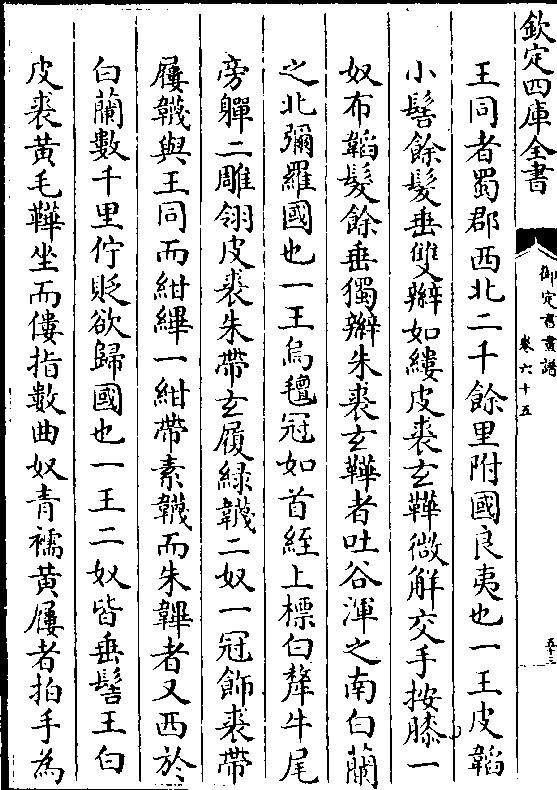 欽定四庫全書
御定書畫譜
卷六十五
五十三
王同者蜀郡西北二千餘里附國良夷也一王皮韜
小髻餘髮垂雙辮如縷皮裘玄鞾微解交手按膝一
奴布韜髮餘垂獨辮朱裘玄鞾者吐谷渾之南白蘭
之北彌羅國也一王烏氊冠如首絰上標白犛牛尾
旁軃二雕翎皮裘朱帶玄履綠韈二奴一冠飾裘帶
屨韈與王同而紺縪一紺帶素韈而朱韠者又西於
白蘭數千里佇貶欲歸國也一王二奴皆垂髻王白
皮裘黄毛鞾坐而僂指數曲奴青襦黄屨者拍手為